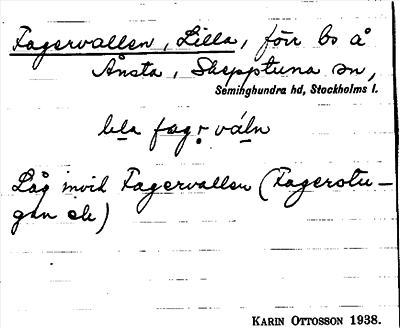 Fagervallen, Lilla, förr bs å
Ånsta, Skepptuna sn,
Seminghundra hd, Stockholms l.
lila fagərváln
Låg invid Fagervallen (Fagerstu-
gan ek)
KARIN OTTOSSON 1938.